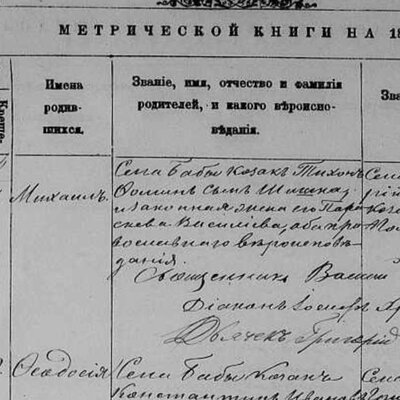 МЕТРИЧЕСКОЙ КНИГИ НА 18
Имена
родив-
шихся.
Званіе, имя, отчество и фамилія
родителей, и какого вѣроиспо-
вѣданія.
Зва
Креще-
Михаилъ.
Села Бабы Козакъ Тихонъ
Ѳоминъ сынъ
и законная жена его Пара
скева Василіева, оба пра
вославнаго вѣроисповѣ-
данія.
Священникъ
Діаконъ
Дьячекъ Григорій
Ѳеодосія
Села Бабы Козакъ
Константинъ Ивановъ